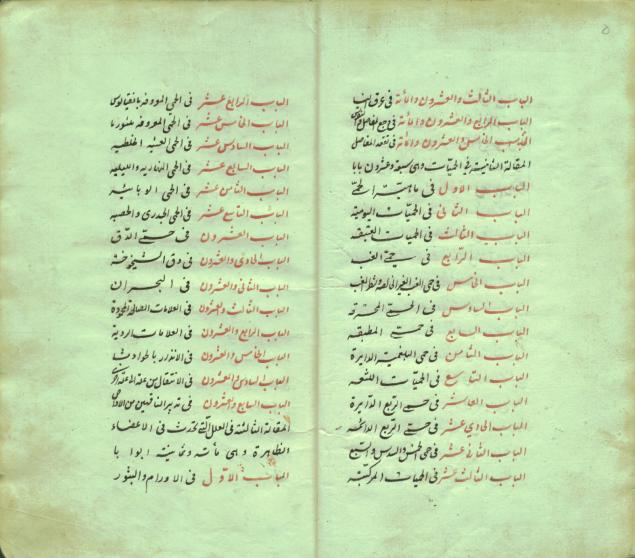 الباب الثالث والعشرون والمأة فى عرق النسا
الباب الرابع والعشرون والمأة فى وجع المفاصل والنقرس
الباب الخامس والعشرون والمأة فى تعقد المفاصل
المقالة الثانية فى الحميات وهى سبعة وعشرون بابا
الباب الاول فى ماهية الحمى
الباب الثانى فى الحميات اليومية
الباب الثالث فى الحميات العتيقه
الباب الرابع فى حمى الغب
الباب الخامس فى حمى الغب الغير الخالصة وشطر الغب
الباب السادس فى الحمى المحرقه
الباب السابع فى حمى المطبقه
الباب الثامن فى حمى البلغمية الدايرة
الباب التاسع فى الحميات اللثقه
الباب العاشر فى حمى الربع الدايرة
الباب الحادى عشر فى حمى الربع الدائمه
الباب الثانى عشر فى حمى الخمس والسدس والسبع
الباب الثالث عشر فى الحميات المركبة
الباب الرابع عشر فى الحمى المعروفه بانفيالوس
الباب الخامس عشر فى الحمى المعروفه بليفوريا
الباب السادس عشر فى الحمى الغشيه الخلطيه
الباب السابع عشر فى الحمى النهاريه والليليه
الباب الثامن عشر فى الحمى الوبائيه
الباب التاسع عشر فى الحمى الجدرى والحصبه
الباب العشرون فى حمى الدق
الباب الحادى والعشرون فى دق الشيخوخة
الباب الثانى والعشرون فى البحران
الباب الثالث والعشرون فى العلامات الصالحة المحمودة
الباب الرابع والعشرون فى العلامات الردية
الباب الخامس والعشرون فى الانذار بالحوادث
الباب السادس والعشرون فى الانتقال من علة الى علة اخرى
الباب السابع والعشرون فى تدبير الناقهين من الامراض
المقالة الثالثة فى العلل التى تحدث فى الاعضاء
الظاهرة وهى مأته وثمانية ابوابا
الباب الاول فى الاورام والبثور